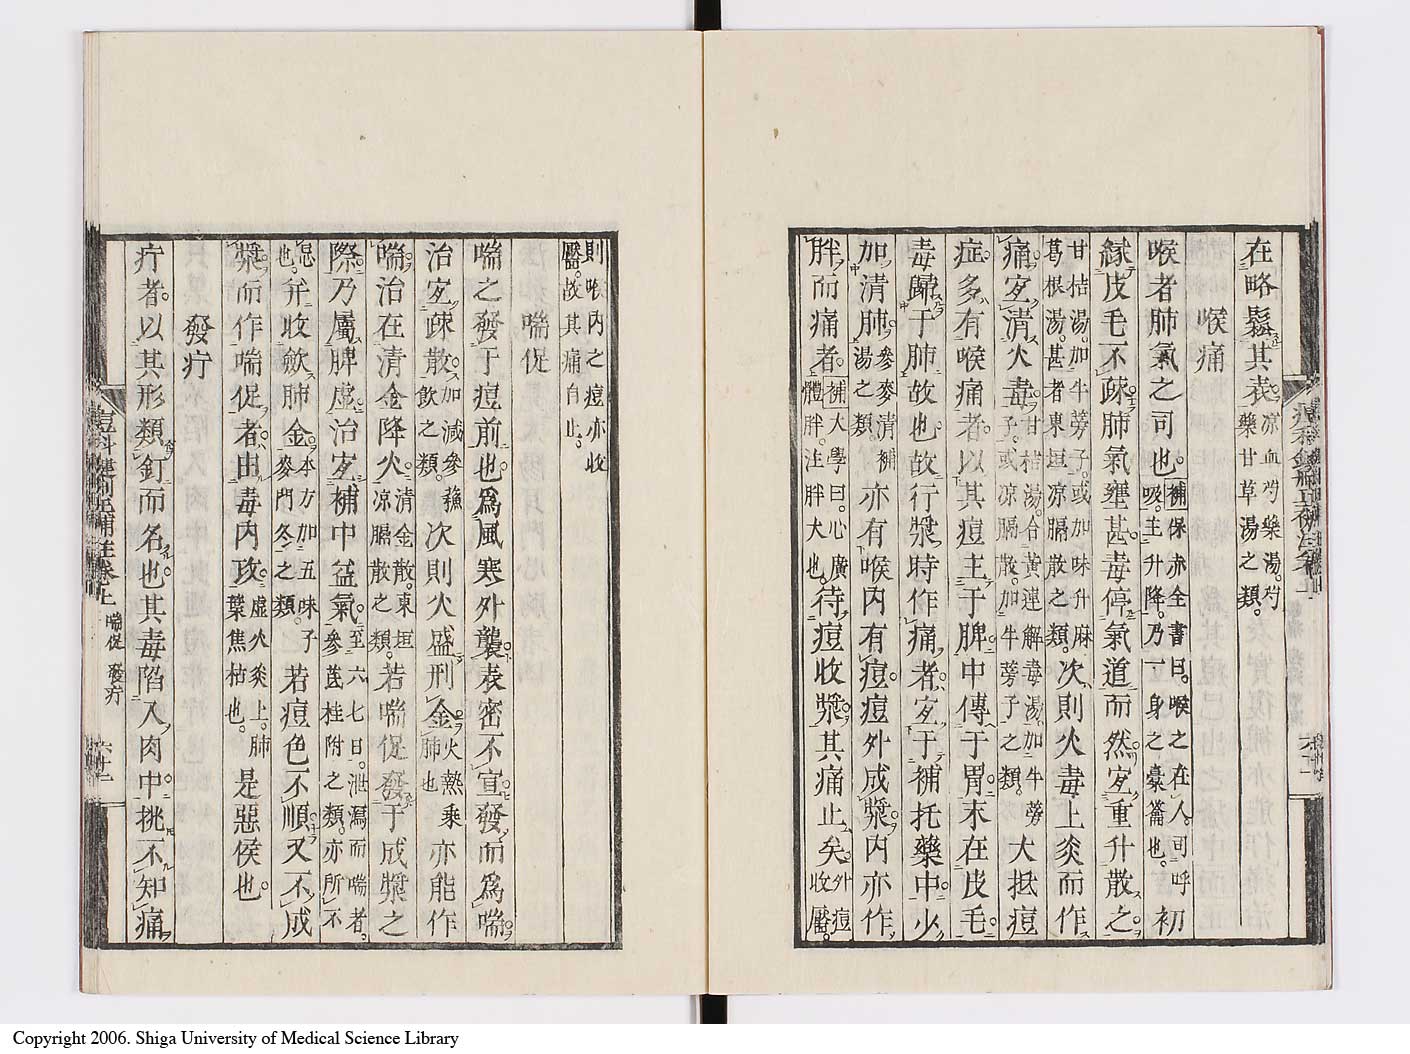 在略鬆其表涼血芍藥湯芍藥甘草湯之類
喉痛
喉者肺氣之司也補保赤全書曰喉之在人可呼吸主升降乃一身之橐籥也初
縁皮毛不疎肺氣壅甚毒停氣道而然宜重升散之
甘桔湯加牛蒡子或加味升麻葛根湯甚者東垣涼膈散之類次則火毒上炎而作
痛宜清火毒甘桔湯合黃連解毒湯加牛蒡子或涼膈散加牛蒡子之類大抵痘
症多有喉痛者以其痘主于脾中傳于胃末在皮毛
毒歸于肺故也故行漿時作痛者宜于補托藥中少
加清肺參麥清補湯之類亦有喉内有痘痘外成漿内亦作
胖而痛者補大學曰心廣體胖注胖大也待痘收漿其痛止矣外痘收靨
則喉内之痘亦收靨故其痛自止
喘促
喘之發于痘前也爲風寒外襲表密不宣發而爲喘
治宜疎散加減參蘇飲之類次則火盛刑金肺也火熱乘亦能作
喘治在清金降火清金散東垣涼膈散之類若喘促發于成漿之
際乃屬脾虛治宜補中益氣至六七日泄瀉而喘者參芪桂附之類亦所不
忌也并收斂肺金本方加五味子麥門冬之類若痘色不順又不成
漿而作喘促者由毒内攻虛火炎上肺葉焦枯也是惡候也
發疔
疔者以其形類釘而名也其毒陷入肉中挑不知痛
痘科鍵刪正補注卷上 喘促 發疔 六十二